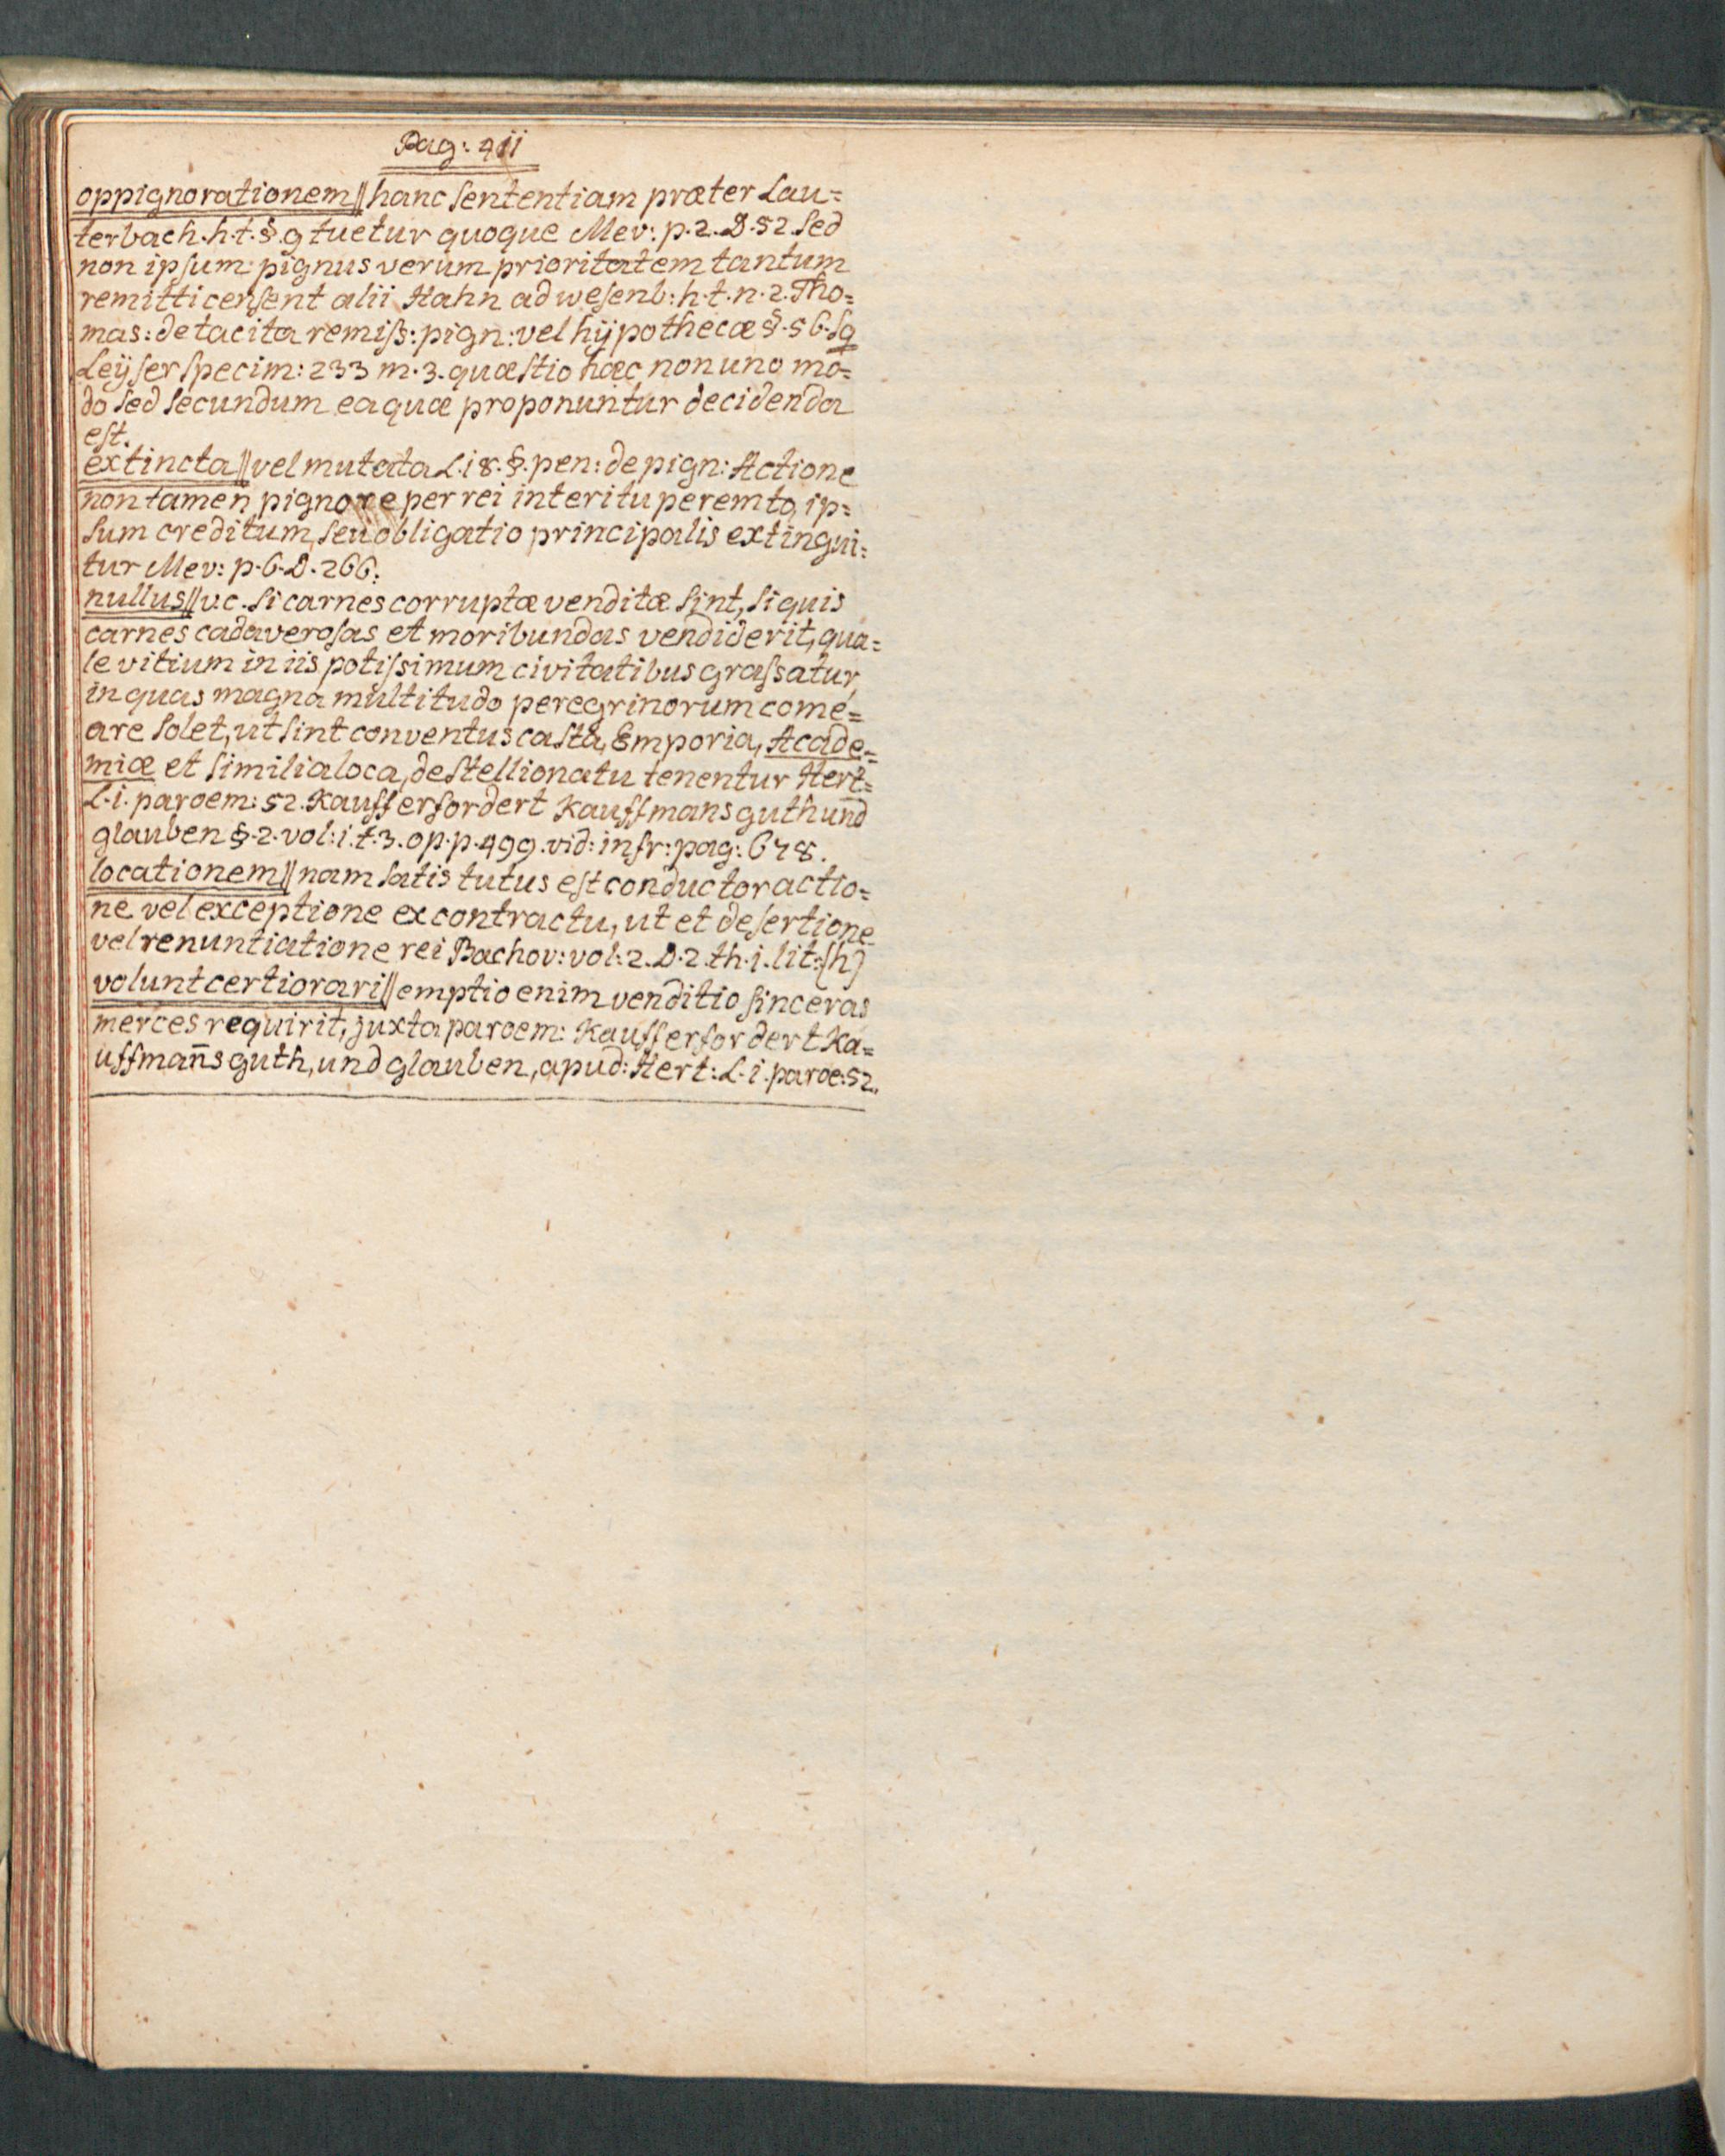 Pag: 411
oppignorationem// hanc sententiam præter Lau=
terbach. h. t. §. 9 tuetur quoque Mev: p. 2. D. 52. sed
non ipsum pignus verum prioritatem tantum
remitti censent alii Hahn ad wesenb: h. t. n. 2. Tho=
mas: de tacita remiss: pign: vel hÿpothecæ §. 56. sq
Leÿser specim: 233 m. 3. quæstio hæc non uno mo=
do sed secundum ea quæ proponuntur decidenda
est.
extincta// vel mutata L. 18. §. pen: de pign: Actione
non tamen pignore per rei interitu peremto, ip=
sum creditum, seu obligatio principalis extingui=
tur Mev: p. 6. D. 266.
nullus// v.c. si carnes corruptæ venditæ sint, si quis
carnes cadaverosas et moribundas vendiderit, qua=
le vitium in iis potissimum civitatibus grassatur,
in quas magna multitudo peregrinorum come=
are solet, ut sint conventus casta, Emporia, Acade=
miæ et similia loca, de stellionatu tenentur Hert=
L. 1. paroem: 52. Kauff erfordert Kauffmans guth und
glauben §. 2. vol: 1. t. 3. op. p. 499. vid: infr: pag: 678.
locationem// nam satis tutus est conductor actio=
ne vel exceptione ex contractu, ut et desertione
vel renuntiatione rei Bachov: vol: 2. D. 2. th. 1. lit: (h)
volunt certiorari// emptio enim venditio sinceras
merces requirit, juxta paroem: Kauff erfordert Ka=
uffmañs guth, und glauben, apud: Hert: L. 1. paroe: 52.